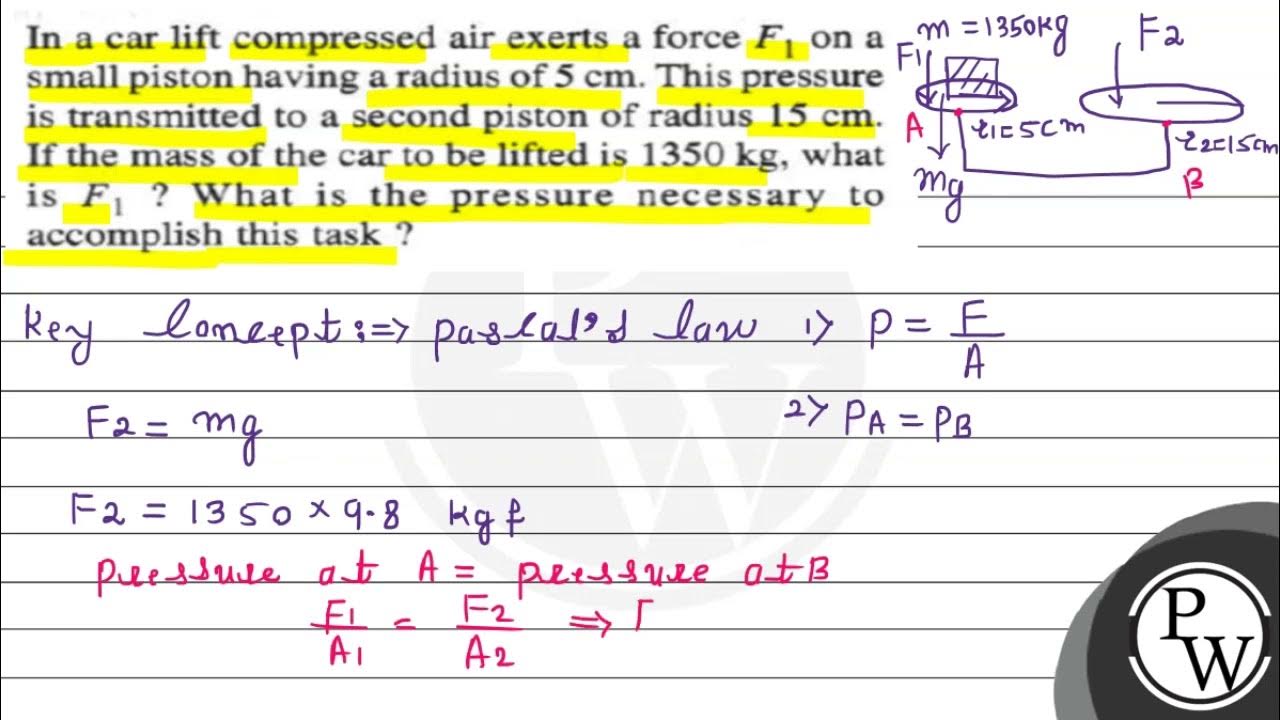 In a car lift compressed air exerts a force F₁ on a
small piston having a radius of 5 cm. This pressure
is transmitted to a second piston of radius 15 cm.
If the mass of the car to be lifted is 1350 kg, what
is F₁ ? What is the pressure necessary to
accomplish this task ?
m = 1350kg
F1
F2
A
r1=5cm
r2=15cm
mg
B
Key Concept :⇒ pascal's law 1> P = F/A
F2 = mg
2> PA = PB
F2 = 1350 × 9.8 kgf
pressure at A = pressure at B
F1/A1 = F2/A2 ⇒
PW